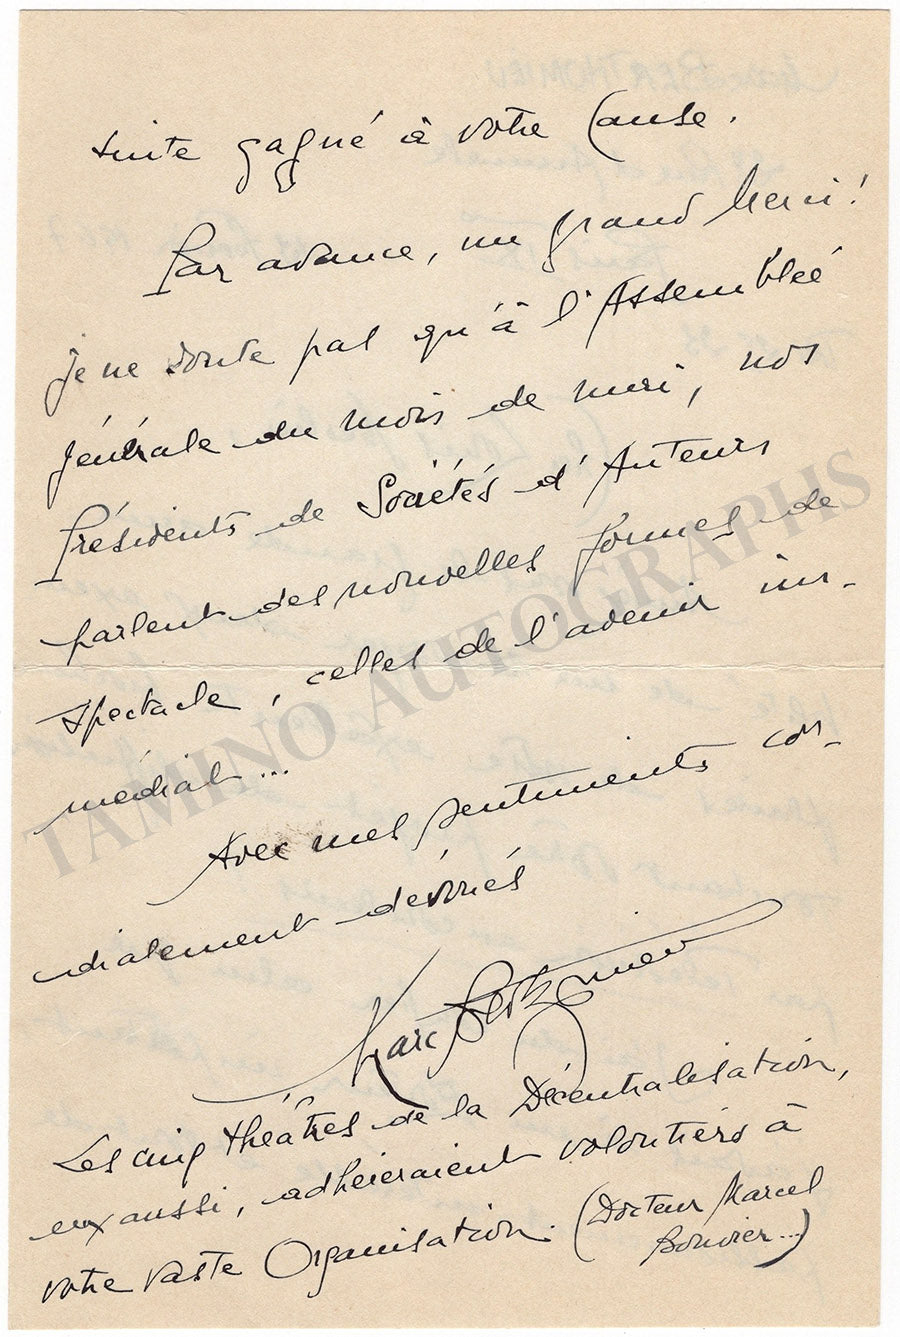 suite gagné à votre Cause.
Par avance, un grand Merci!
je ne doute pas qu'à l'Assemblée
générale du mois de mai, nos
Présidents de Sociétés d'Auteurs
parlent des nouvelles formes de
spectacle, celles de l'avenir im-
médiat...
Avec mes sentiments cor-
dialement dévoués
Marc Berthomieu
Les cinq théâtres de la Décentralisation,
eux aussi, adhéreraient volontiers à
votre vaste Organisation. (Docteur Marcel
Bouvier...)
TAMINO AUTOGRAPHS